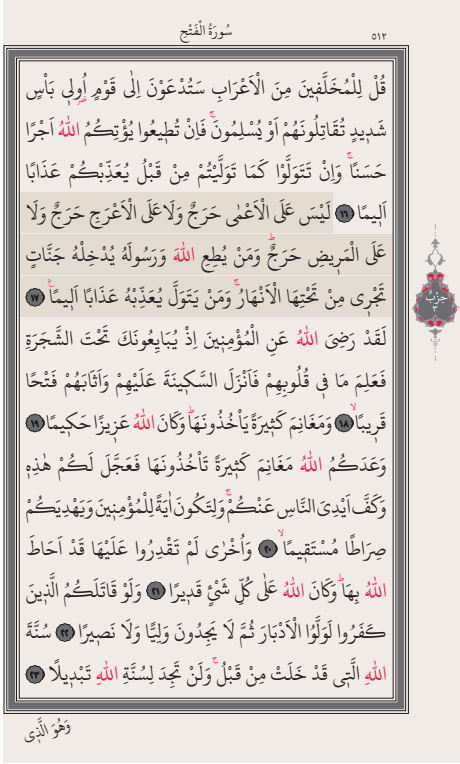 سُورَةُ الْفَتْحِ
٥١٢
قُلْ لِلْمُخَلَّفٖينَ مِنَ الْاَعْرَابِ سَتُدْعَوْنَ اِلٰى قَوْمٍ اُو۬لٖى بَاْسٍ
شَدٖيدٍ تُقَاتِلُونَهُمْ اَوْ يُسْلِمُونَۚ فَاِنْ تُطٖيعُوا يُؤْتِكُمُ اللّٰهُ اَجْرًا
حَسَنًاۚ وَاِنْ تَتَوَلَّوْا كَمَا تَوَلَّيْتُمْ مِنْ قَبْلُ يُعَذِّبْكُمْ عَذَابًا
اَلٖيمًا ١٦ لَيْسَ عَلَى الْاَعْمٰى حَرَجٌ وَلَا عَلَى الْاَعْرَجِ حَرَجٌ وَلَا
عَلَى الْمَرٖيضِ حَرَجٌؕ وَمَنْ يُطِعِ اللّٰهَ وَرَسُولَهُ يُدْخِلْهُ جَنَّاتٍ
تَجْرٖى مِنْ تَحْتِهَا الْاَنْهَارُۚ وَمَنْ يَتَوَلَّ يُعَذِّبْهُ عَذَابًا اَلٖيمًاۚ ١٧
حِزْبْ
لَقَدْ رَضِىَ اللّٰهُ عَنِ الْمُؤْمِنٖينَ اِذْ يُبَايِعُونَكَ تَحْتَ الشَّجَرَةِ
فَعَلِمَ مَا فٖى قُلُوبِهِمْ فَاَنْزَلَ السَّكٖينَةَ عَلَيْهِمْ وَاَثَابَهُمْ فَتْحًا
قَرٖيبًاۙ ١٨ وَمَغَانِمَ كَثٖيرَةً يَاْخُذُونَهَاؕ وَكَانَ اللّٰهُ عَزٖيزًا حَكٖيمًا ١٩
وَعَدَكُمُ اللّٰهُ مَغَانِمَ كَثٖيرَةً تَاْخُذُونَهَا فَعَجَّلَ لَكُمْ هٰذِهٖ
وَكَفَّ اَيْدِىَ النَّاسِ عَنْكُمْۚ وَلِتَكُونَ اٰيَةً لِلْمُؤْمِنٖينَ وَيَهْدِيَكُمْ
صِرَاطًا مُسْتَقٖيمًاۙ ٢٠ وَاُخْرٰى لَمْ تَقْدِرُوا عَلَيْهَا قَدْ اَحَاطَ
اللّٰهُ بِهَاؕ وَكَانَ اللّٰهُ عَلٰى كُلِّ شَیْءٍ قَدٖيرًا ٢١ وَلَوْ قَاتَلَكُمُ الَّذٖينَ
كَفَرُوا لَوَلَّوُا الْاَدْبَارَ ثُمَّ لَا يَجِدُونَ وَلِيًّا وَلَا نَصٖيرًا ٢٢ سُنَّةَ
اللّٰهِ الَّتٖى قَدْ خَلَتْ مِنْ قَبْلُۚ وَلَنْ تَجِدَ لِسُنَّةِ اللّٰهِ تَبْدٖيلًا ٢٣
وَهُوَ الَّذٖى